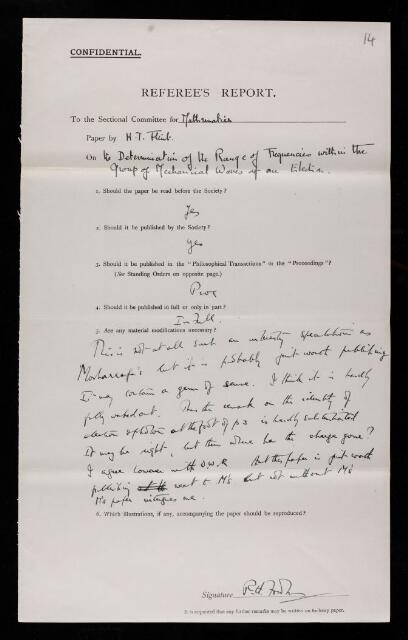 14
CONFIDENTIAL.
REFEREE'S REPORT.
To the Sectional Committee for Mathematics
Paper by H. T. Flint.
On the Determination of the Range of Frequencies within the
Group of Mechanical Waves of an Electron.
1. Should the paper be read before the Society?
Yes
2. Should it be published by the Society?
Yes
3. Should it be published in the "Philosophical Transactions" or the "Proceedings"?
(See Standing Orders on opposite page.)
Proc
4. Should it be published in full or only in part?
In full
5. Are any material modifications necessary?
This is not at all such an interesting speculation as
but it is probably just worth publishing
It may contain a germ of sense. I think it is hardly
fully worked out. Thus the remark on the identity of
electron at the foot of p 3 is hardly substantiated
It may be right, but then where has the charge gone?
I agree however with O.W.R. that the paper is just worth
publishing next to M's but not without M's
M's paper intrigues me.
6. Which illustrations, if any, accompanying the paper should be reproduced?
Signature R. H. Fowler
It is requested that any further remarks may be written on the